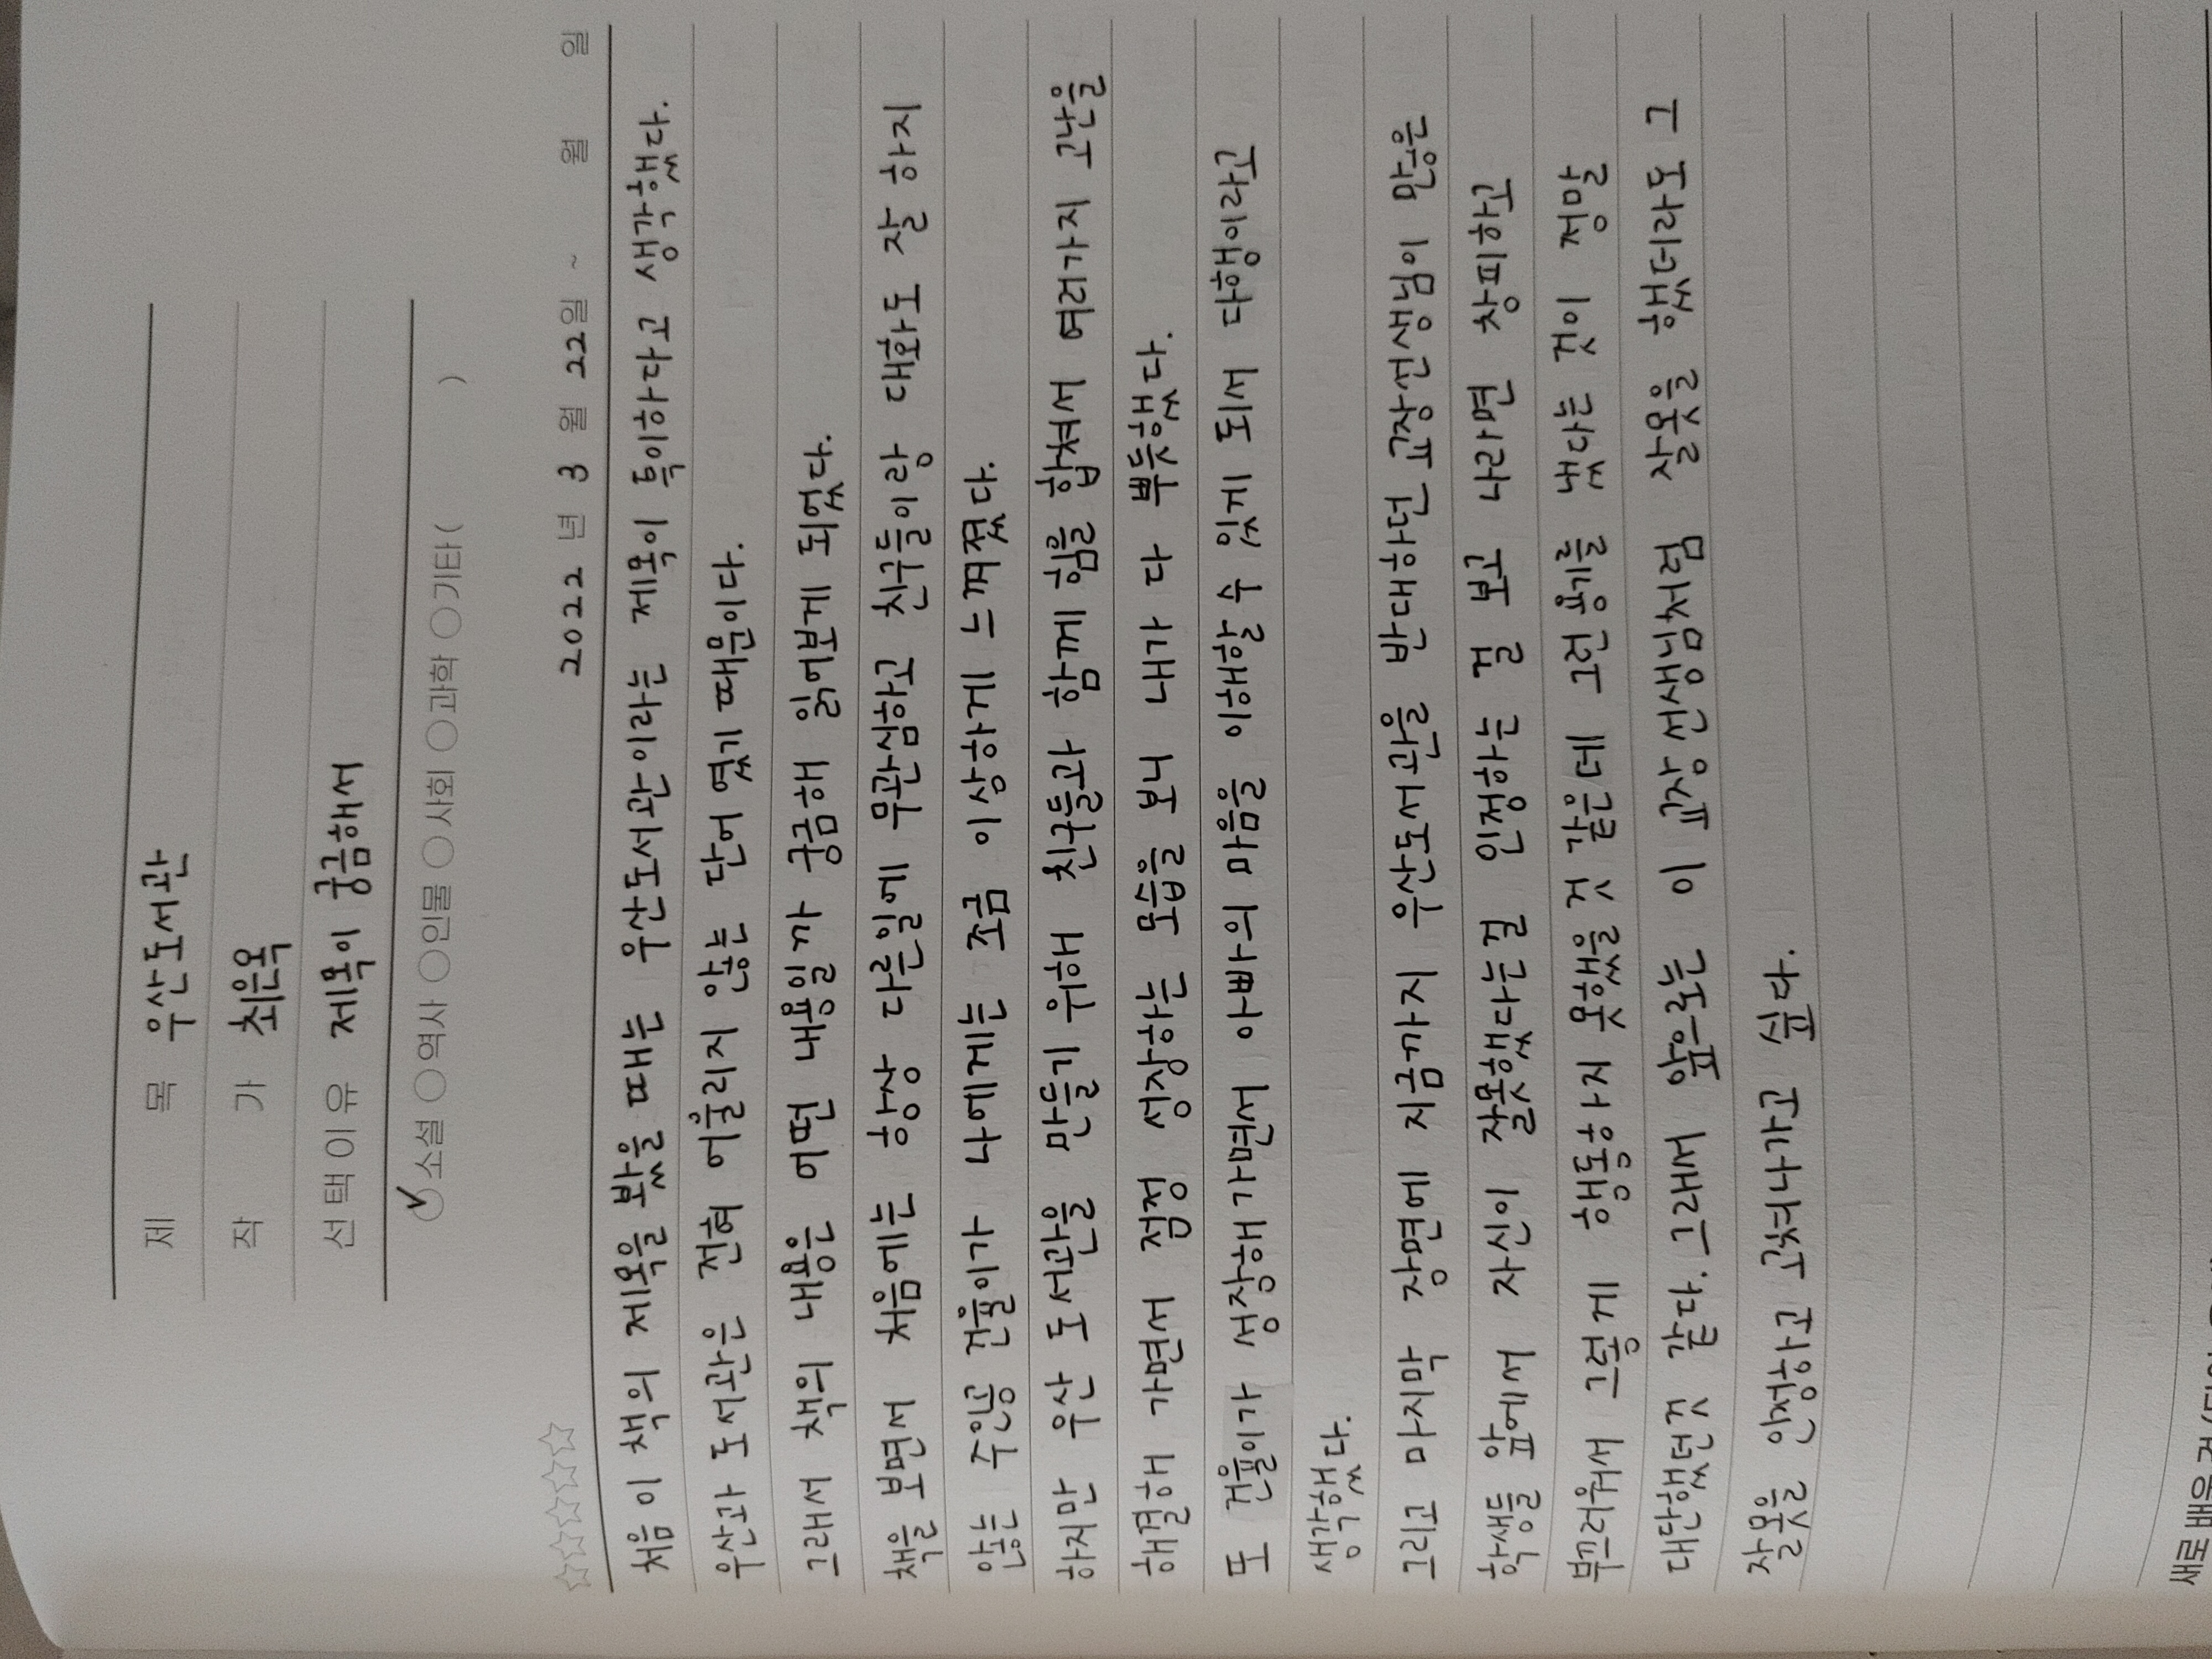 제 목 우산도서관
작 가 최은옥
선택이유 제목이 궁금해서
✓소설 ○역사 ○인물 ○사회 ○과학 ○기타 ( )
☆☆☆☆☆ 2022 년 3 월 22일 ~ 월 일
처음 이 책의 제목을 봤을 때는 우산도서관이라는 제목이 특이하다고 생각했다.
우산과 도서관은 전혀 어울리지 않는 단어 였기 때문이다.
그래서 책의 내용은 어떤 내용일까 궁금해 읽어보게 되었다.
책을 보면서 처음에는 항상 다른일에 무관심하고 친구들이랑 대화도 잘 하지
않는 주인공 건율이가 나에게는 조금 이상하게 느껴졌다.
하지만 우산 도서관을 만들기 위해 친구들과 함께 힘을 합쳐서 여러가지 고난을
해결해 가면서 점정 성장하는 모습을 보니 내가 다 뿌듯했다.
또 건율이가 성장해 가면서 아빠의 마음을 이해할 수 있게 되서 다행이라고
생각했다.
그리고 마지막 장면에 지금까지 우산도서관을 반대하던 교장선생님이 많은
학생들 앞에서 자신이 잘못했다는걸 인정하는 걸 보고 나라면 창피하고
부끄러워서 그렇게 행동하지 못했을 것 같은데 그런 용기를 냈다는 것이 정말
대단했던것 같다. 그래서 앞으로는 이 교장선생님처럼 잘못을 했더라도 그
잘못을 인정하고 고쳐나가고 싶다.
새로 배운 것